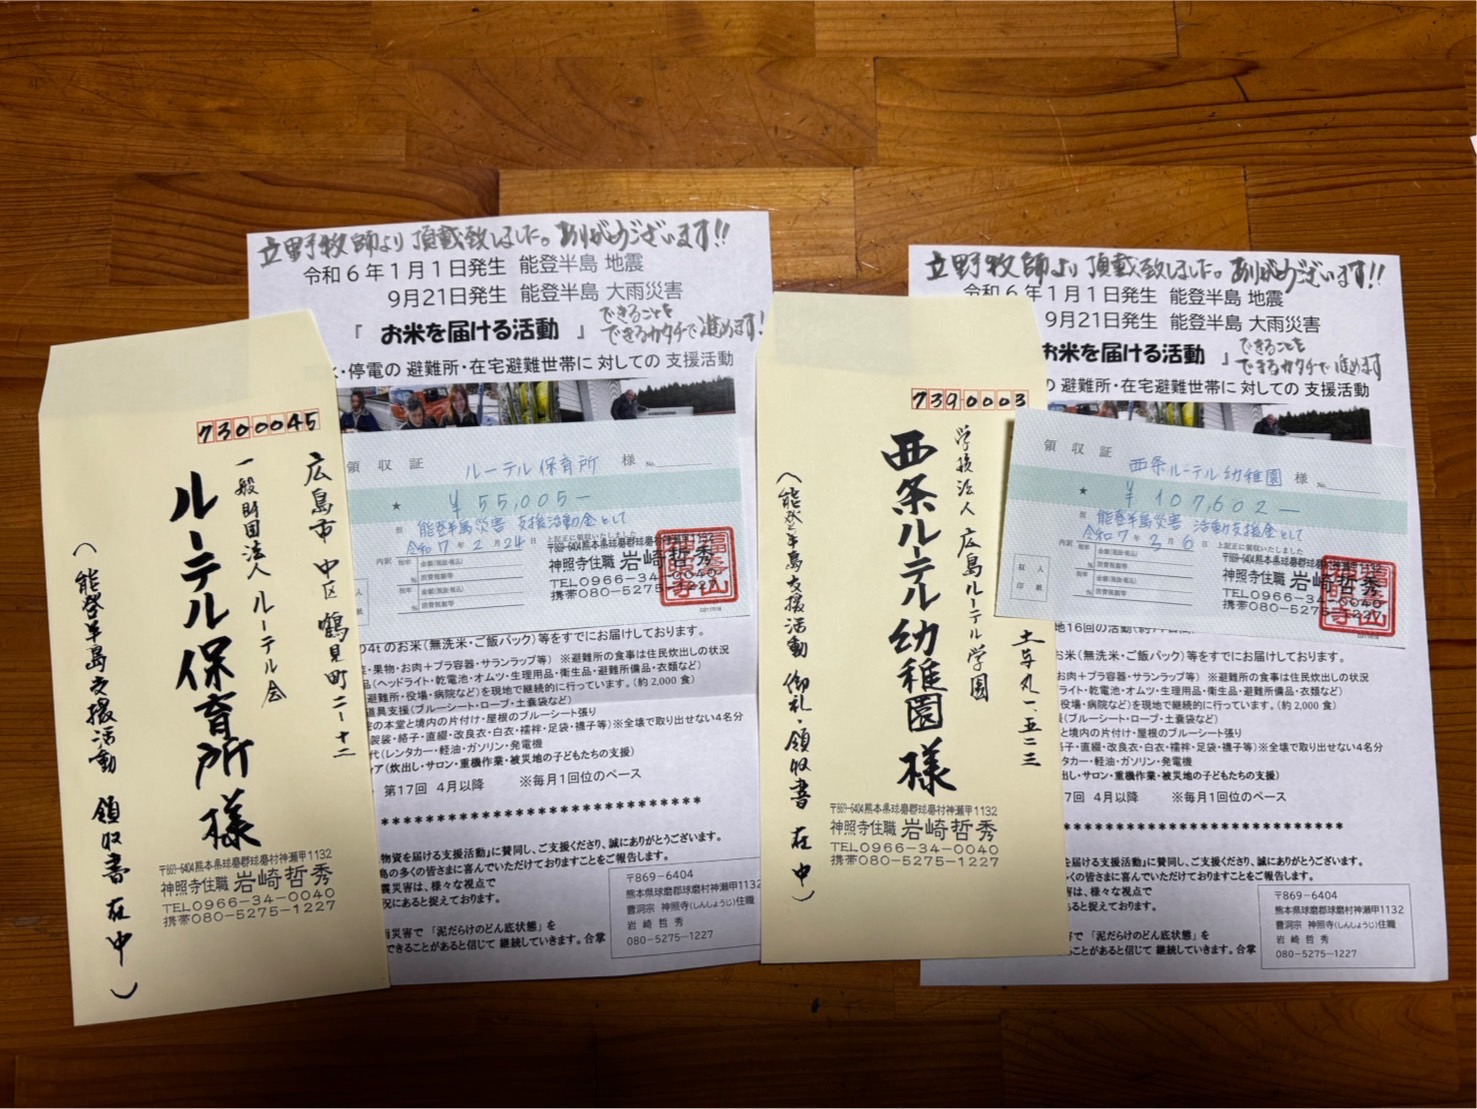 立野牧師より頂戴致しました。ありがとうございます!!
令和6年1月1日発生 能登半島 地震
9月21日発生 能登半島 大雨災害
「 お米を届ける活動 」
できることを
できるカタチで進めます!
・停電の 避難所・在宅避難世帯に 対しての 支援活動
領収証 ルーテル保育所 様 No.
★ ¥55,005-
但 能登半島災害 支援活動金として
令和7年2月24日 上記正に領収いたしました
内訳
税率 金額(税抜・税込)
% 消費税額等
税率 金額(税抜・税込)
% 消費税額等
〒869-6404熊本県球磨郡球磨村神瀬甲1132
神照寺住職 岩崎哲秀
TEL0966-34-0040
携帯080-5275-1227
4tのお米(無洗米・ご飯パック)等をすでにお届けしております。
・果物・お肉+プラ容器・サランラップ等) ※避難所の食事は住民炊出しの状況
品(ヘッドライト・乾電池・オムツ・生理用品・衛生品・避難所備品・衣類など)
避難所・役場・病院など)を現地で継続的に行っています。(約2,000 食)
道具支援(ブルーシート・ロープ・土嚢袋など)
の本堂と境内の片付け・屋根のブルーシート張り
袈裟・絡子・直綴・改良衣・白衣・襦袢・足袋・襪子等)※全壊で取り出せない4名分
代(レンタカー・軽油・ガソリン・発電機
ア(炊出し・サロン・重機作業・被災地の子どもたちの支援)
第17回 4月以降 ※毎月1回位のペース
物資を届ける支援活動」に賛同し、ご支援くださり、誠にありがとうございます。
島の皆さまに喜んでいただけておりますことをご報告します。
震災害は、様々な視点で
況にあると捉えております。
雨災害で 「泥だらけのどん底状態」を
できることがあると信じて 継続していきます。合掌
〒869-6404
熊本県球磨郡球磨村神瀬甲1132
曹洞宗 神照寺(しんしょうじ)住職
岩 崎 哲 秀
080-5275-1227
7300045
広島市 中区 鶴見町二-十二
一般財団法人 ルーテル会
ルーテル保育所 様
(能登半島支援活動 領収書 在中)
〒869-6404熊本県球磨郡球磨村神瀬甲1132
神照寺住職 岩崎哲秀
TEL0966-34-0040
携帯080-5275-1227
立野牧師より頂戴致しました。ありがとうございます!!
令和6年1月1日発生 能登半島 地震
9月21日発生 能登半島 大雨災害
お米を届ける活動 」
できることを
できるカタチで進めます
の 避難所・在宅避難世帯に 対しての 支援活動
領収証 西条ルーテル幼稚園 様 No.
★ ¥107,602-
但 能登半島災害 活動支援金として
令和7年3月6日 上記正に領収いたしました
収入
印紙
内訳
税率 金額(税抜・税込)
% 消費税額等
税率 金額(税抜・税込)
% 消費税額等
〒869-6404熊本県球磨郡球磨村神瀬甲1132
神照寺住職 岩崎哲秀
TEL0966-34-0040
携帯080-5275-1227
お米(無洗米・ご飯パック)等をすでにお届けしております。
お肉+プラ容器・サランラップ等) ※避難所の食事は住民炊出しの状況
ライト・乾電池・オムツ・生理用品・衛生品・避難所備品・衣類など)
役場・病院など)を現地で継続的に行っています。(約2,000 食)
(ブルーシート・ロープ・土嚢袋など)
と境内の片付け・屋根のブルーシート張り
子・直綴・改良衣・白衣・襦袢・足袋・襪子等)※全壊で取り出せない4名分
タカー・軽油・ガソリン・発電機
出し・サロン・重機作業・被災地の子どもたちの支援)
7回 4月以降 ※毎月1回位のペース
を届ける支援活動」に賛同し、ご支援くださり、誠にありがとうございます。
多くの皆さまに喜んでいただけておりますことをご報告します。
害は、様々な視点で
あると捉えております。
害で 「泥だらけのどん底状態」を
ことがあると信じて 継続していきます。合掌
〒869-6404
熊本県球磨郡球磨村神瀬甲1132
曹洞宗 神照寺(しんしょうじ)住職
岩 崎 哲 秀
080-5275-1227
7390003
土与丸一、五二三
学校法人 広島ルーテル学園
西条ルーテル幼稚園 様
(能登半島支援活動 御礼・領収書 在中)
〒869-6404熊本県球磨郡球磨村神瀬甲1132
神照寺住職 岩崎哲秀
TEL0966-34-0040
携帯080-5275-1227